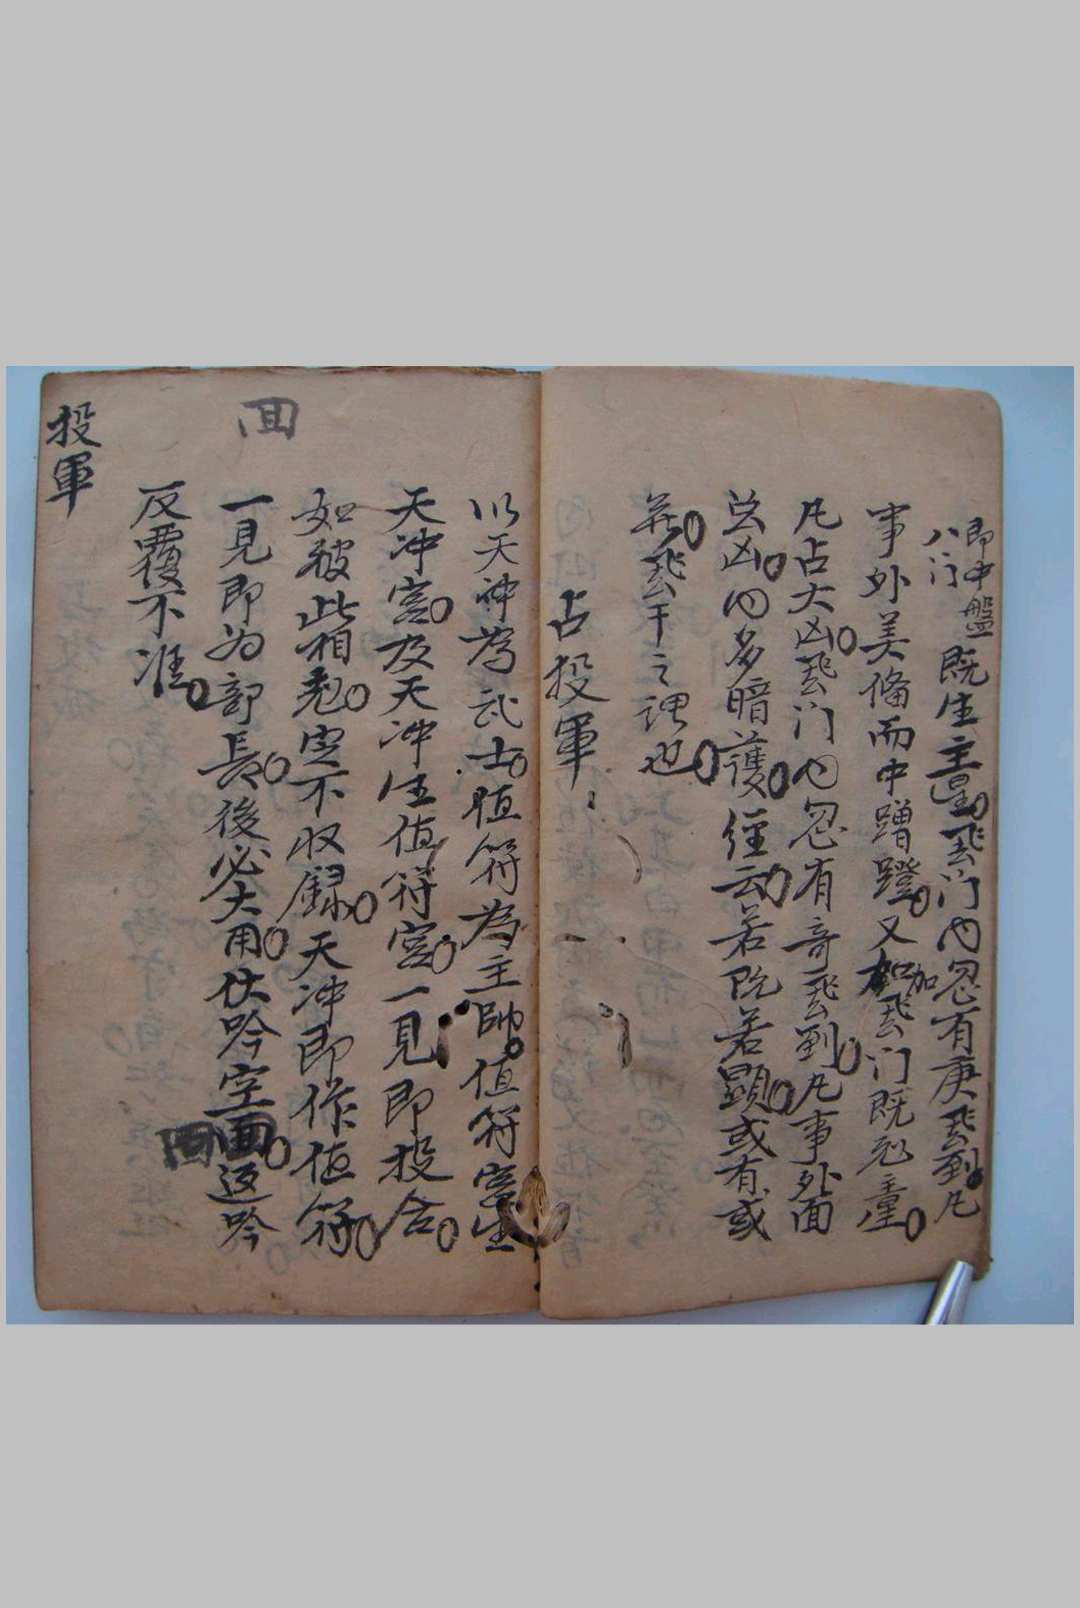 即中盤
八门
既生主星。飛门内忽有庚飛到。凡
事外美俻而中蹭蹬。又加飛门既剋
凡占大凶。飛门内忽有奇飛到。凡事外面
凶。内多暗護。經云若既若顯。或有或
無。飛干之谓也。
占投軍
以天冲為武士。值符為主帥。值符宮生
天冲宮。及天冲生值符宮。一見即投合。
如彼此相剋。定不收録。天冲即作值符。
一見即为部長。後必大用。伏吟空回。返吟
反覆不准。
回
投軍